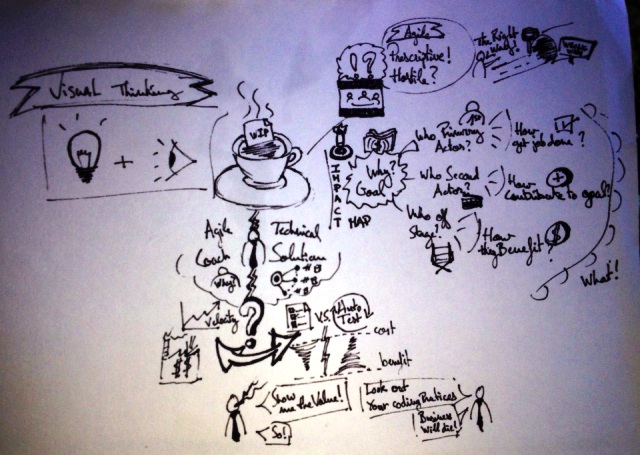 Visual Thinking
+
WIP
Agile
Prescriptive!
Hostile?
!?
The Right
Way!
IMPACT
MAP
Why?
Goal
Who Primary
Actors?
1st
How
get job done?
Who Second
Actors?
How
Contribute to goal?
Who off
Stage?
How
they Benefit?
$
What!
Agile
Coach
Why?
Technical
Solution
#B
#B
#B
Velocity
?
V.S.
Auto
Test
cost
benefit
Show
me the Value!
So!
Look out
Your coding Practices
Business
Will die!